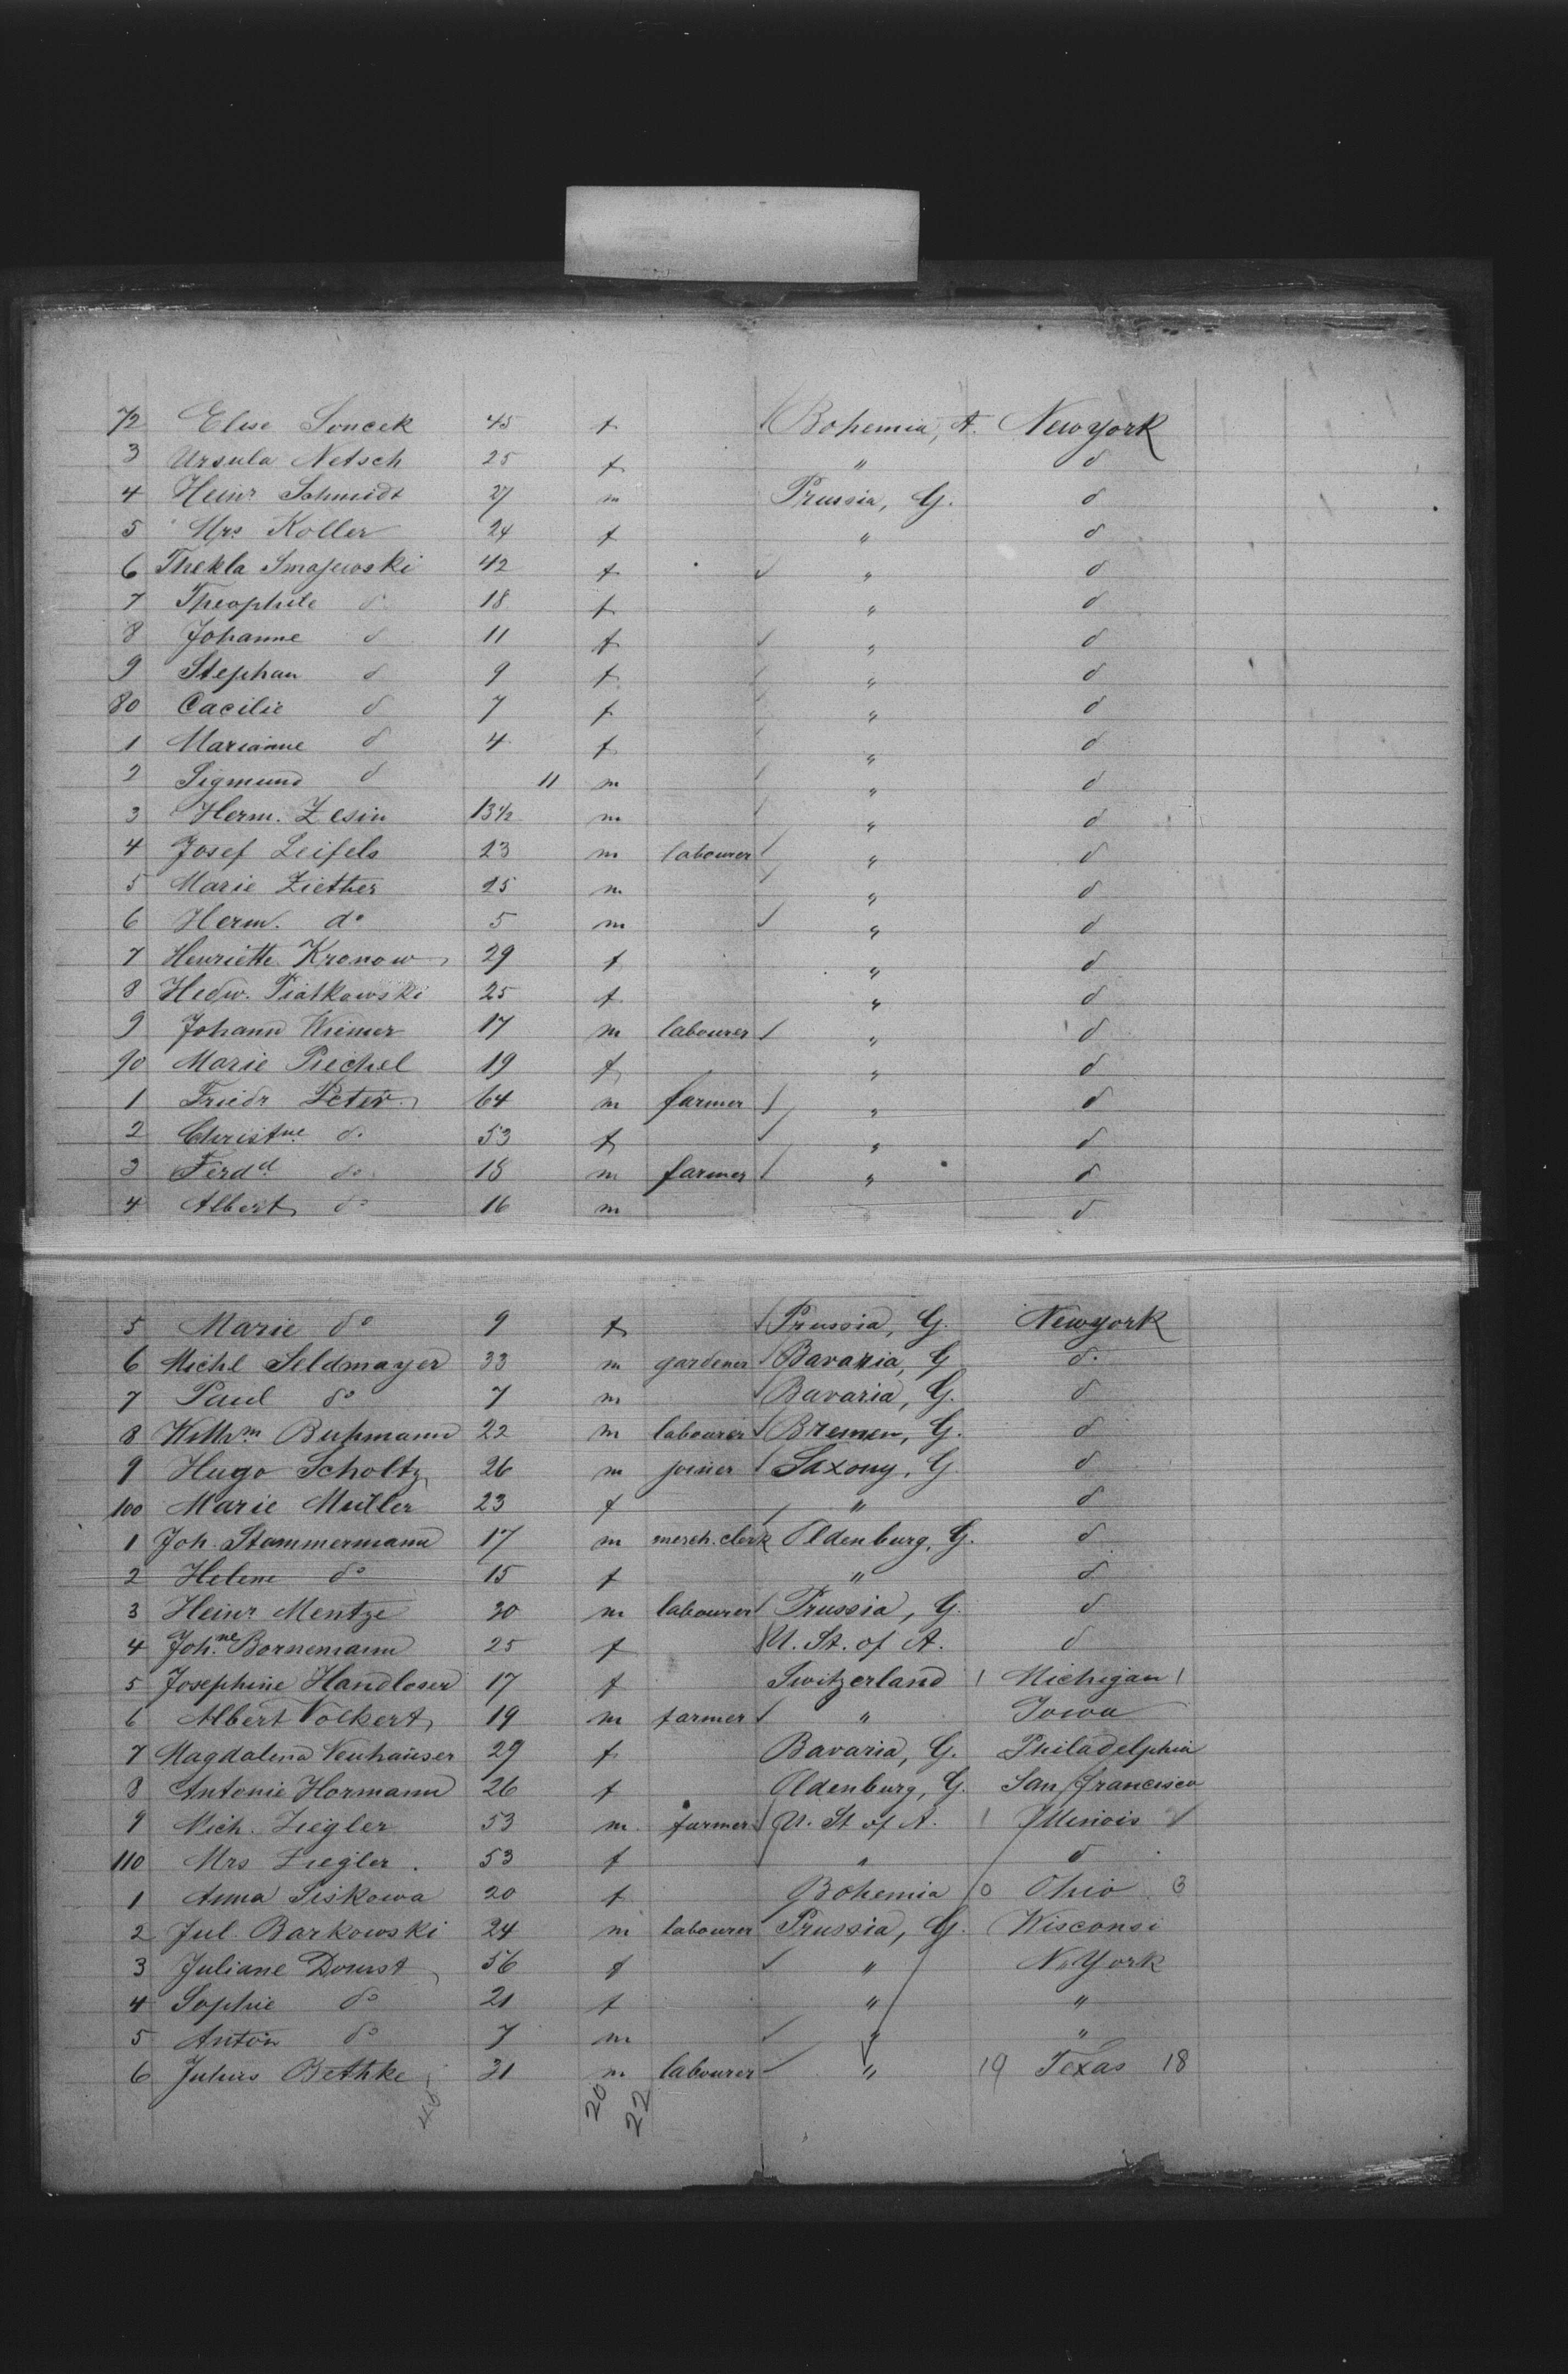 72 Elise Soncek 45 f Bohemia, A. Newyork
3 Ursula Netsch 25 f " d
4 Heinr Schmidt 27 m Prussia, G. d
5 Mrs Koller 24 f " d
6 Thekla Smajewski 42 f " d
7 Theophile d 18 f " d
8 Johanne d 11 f " d
9 Stephan d 9 f " d
80 Cacilie d 7 f " d
1 Marianne d 4 f " d
2 Sigmund d 11 m " d
3 Herm. Zesin 13 1/2 m " d
4 Josef Leifels 23 m labourer " d
5 Marie Ziether 25 m " d
6 Herm. do 5 m " d
7 Henriette Kronow 29 f " d
8 Hedw. Piatkowski 25 f " d
9 Johann Wiemer 17 m labourer " d
90 Marie Piechel 19 f " d
1 Friedr Peter 64 m farmer " d
2 Christne d. 53 f " d
3 Ferdd do 18 m farmer " d
4 Albert do 16 m " d
5 Marie do 9 f Prussia, G. Newyork
6 Michl Seldmayer 33 m gardener Bavaria, G d.
7 Paul do 7 m Bavaria, G. d
8 Wilhm Bußmann 22 m labourer Bremen, G. d
9 Hugo Scholtz 26 m joiner Saxony, G. d
100 Marie Müller 23 f " d
1 Joh. Stammermann 17 m merch. clerk Oldenburg, G. d
2 Helene do 15 f " d
3 Heinr Mentze 30 m labourer Prussia, G. d
4 Johne Bornemann 25 f U. St. of A. d
5 Josephine Handloser 17 f Switzerland 1 Michigan 1
6 Albert Volkert 19 m farmer " Iowa
7 Magdalena Neuhäuser 29 f Bavaria, G. Philadelphia
8 Antonie Hormann 26 f Oldenburg, G. San francisco
9 Mich. Ziegler 53 m. farmer U. St of A. 1 Illinois
110 Mrs Ziegler. 53 f " d
1 Anna Siskowa 20 f Bohemia 0 Ohio 3
2 Jul. Barkowski 24 m labourer Prussia, G. Wisconsi
3 Juliane Dorust 56 f " N. York
4 Sophie do 21 f " "
5 Anton do 7 m " "
6 Julius Bethke 31 m labourer " 19 Texas 18
20 22